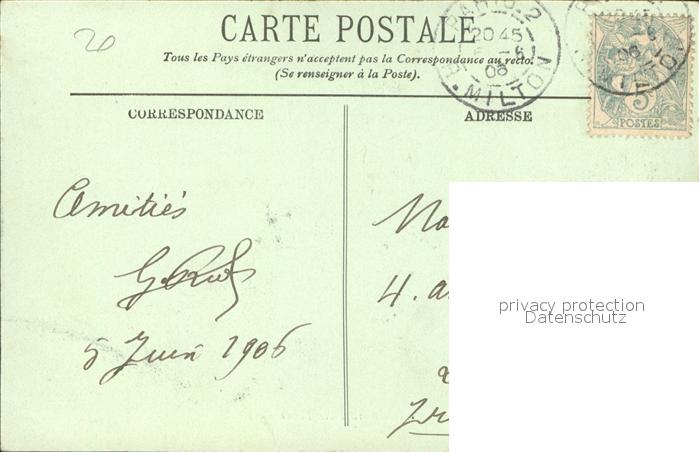 20
CARTE POSTALE
Tous les Pays étrangers n'acceptent pas la Correspondance au recto.
(Se renseigner à la Poste).
PARIS. 2
20 45
06
R. MILTON
5
POSTES
CORRESPONDANCE
ADRESSE
Amitiés
5 Juin 1906
4. a
privacy protection
Datenschutz